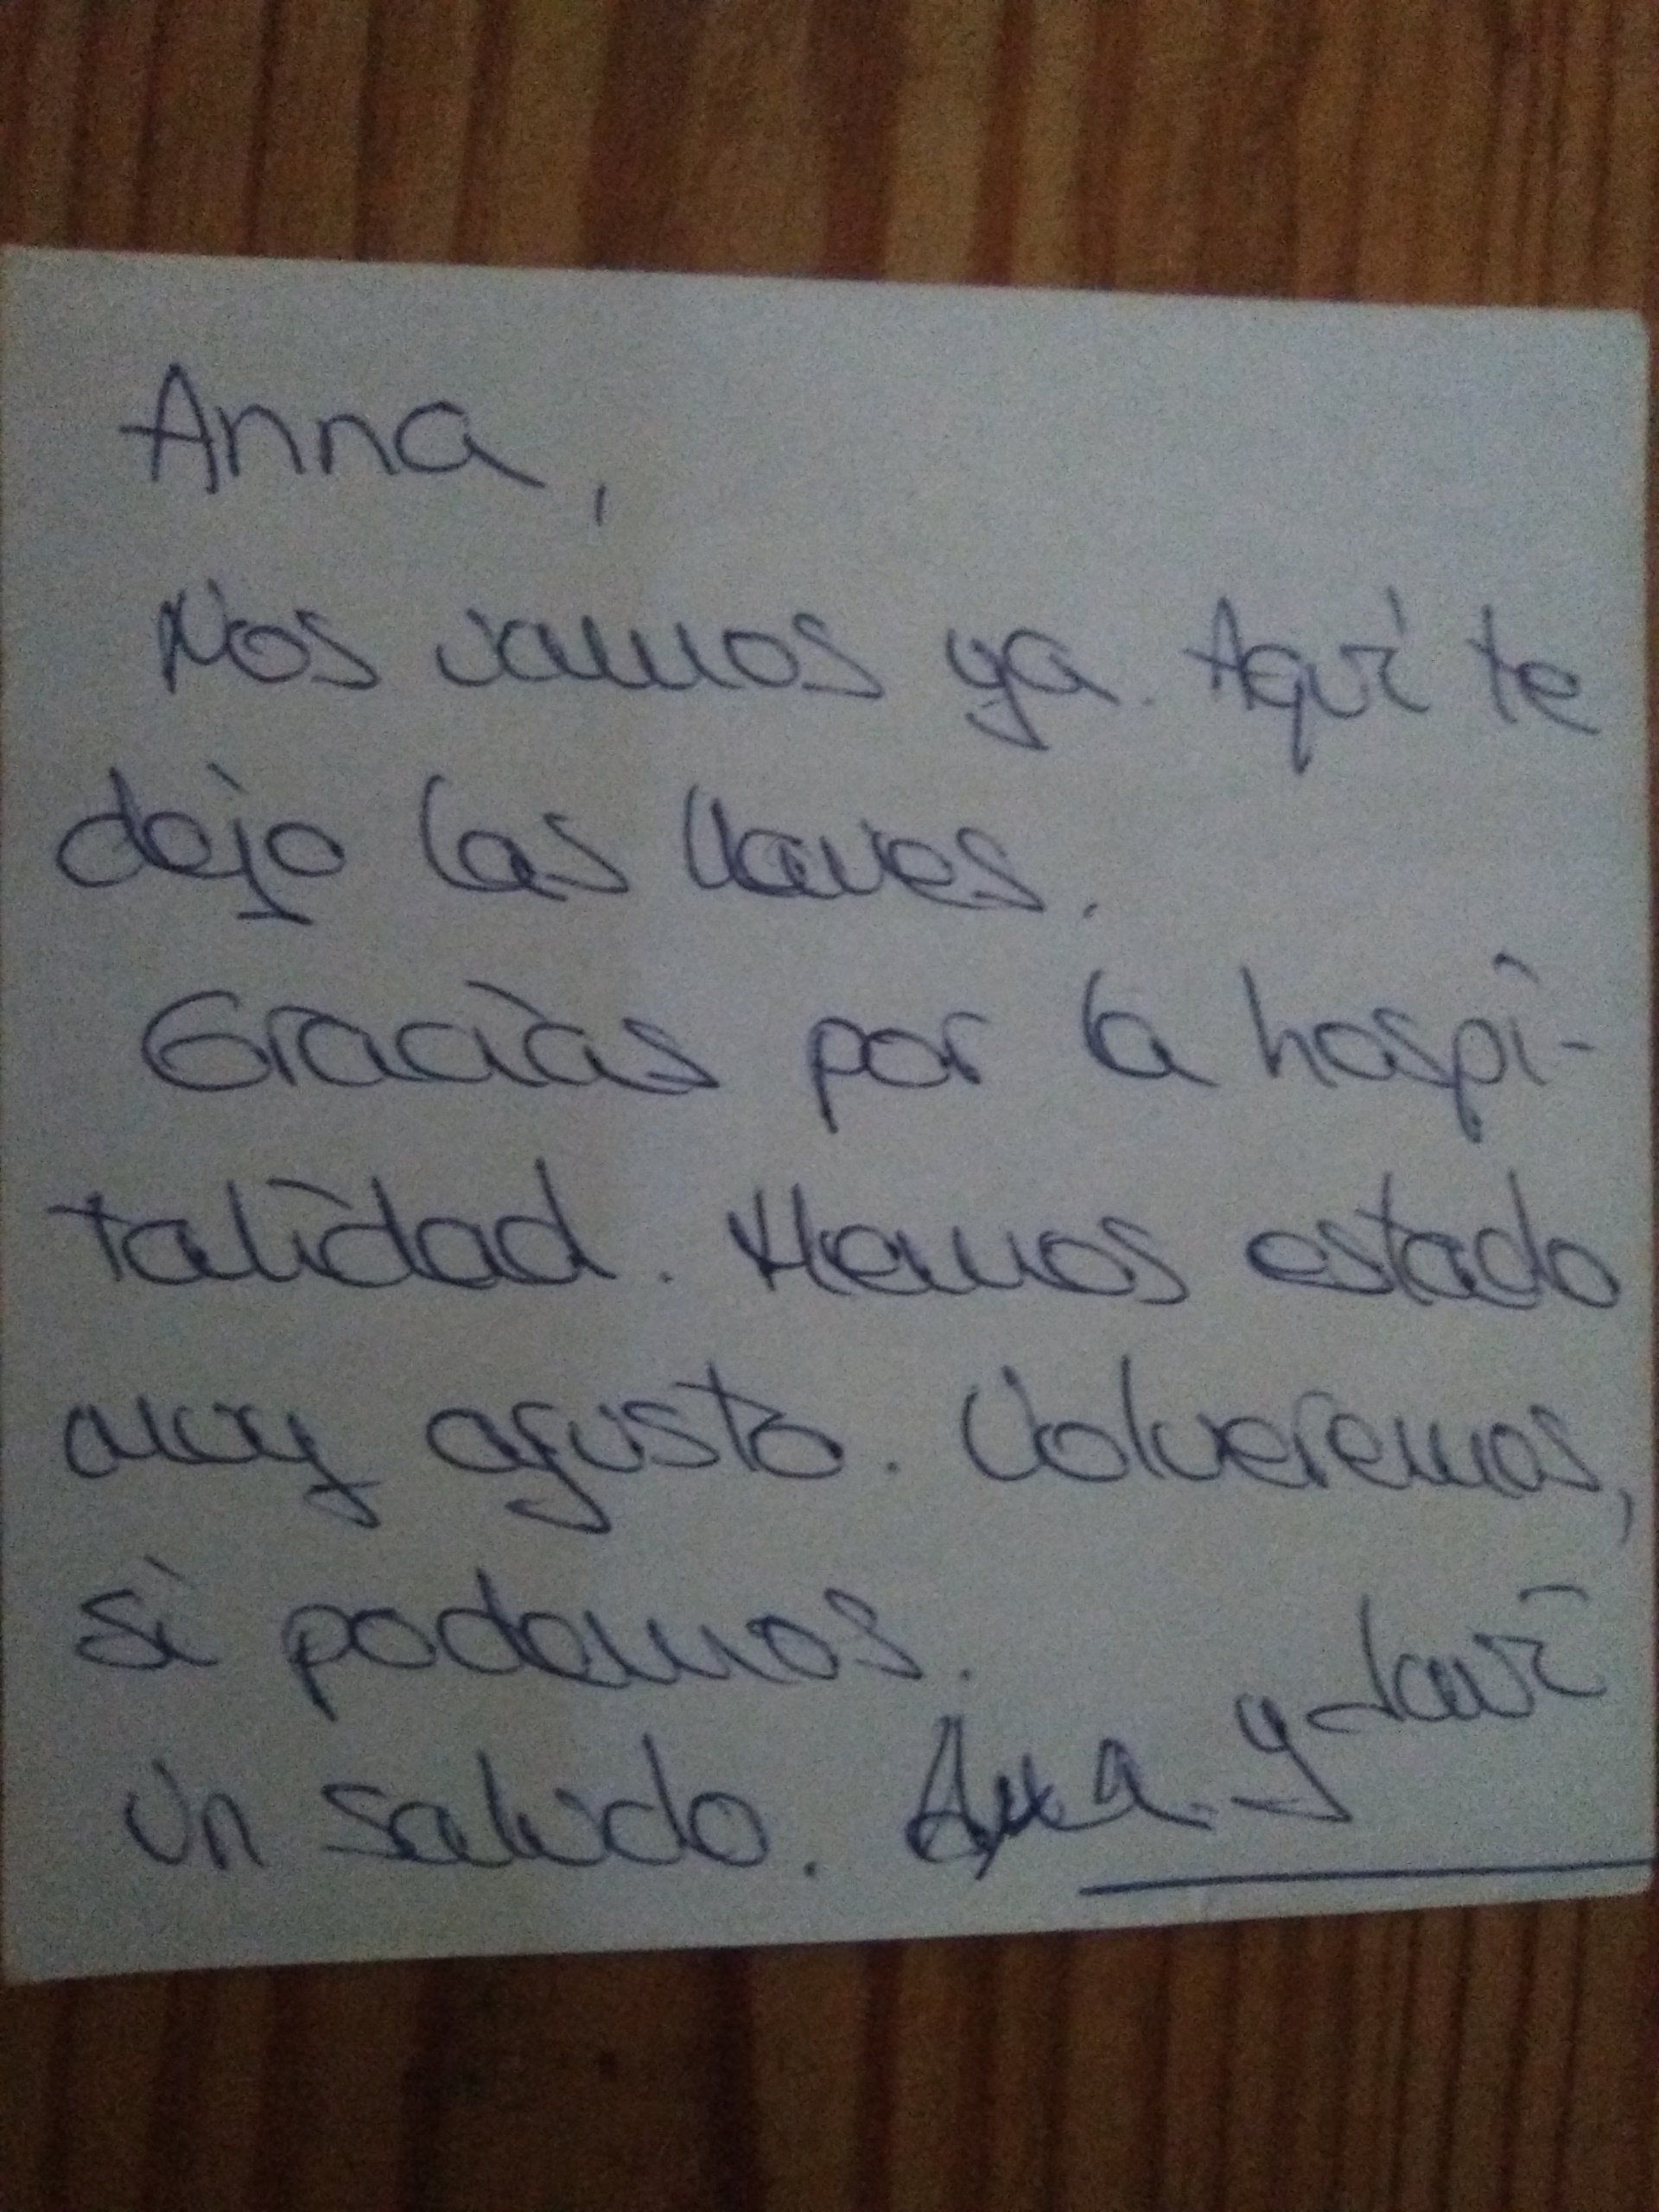 Anna,
Nos vamos ya. Aquí te
dejo las llaves.
Gracias por la hospi-
talidad. Hemos estado
muy agusto. Volveremos,
si podemos.
Un saludo. Ana y Javi